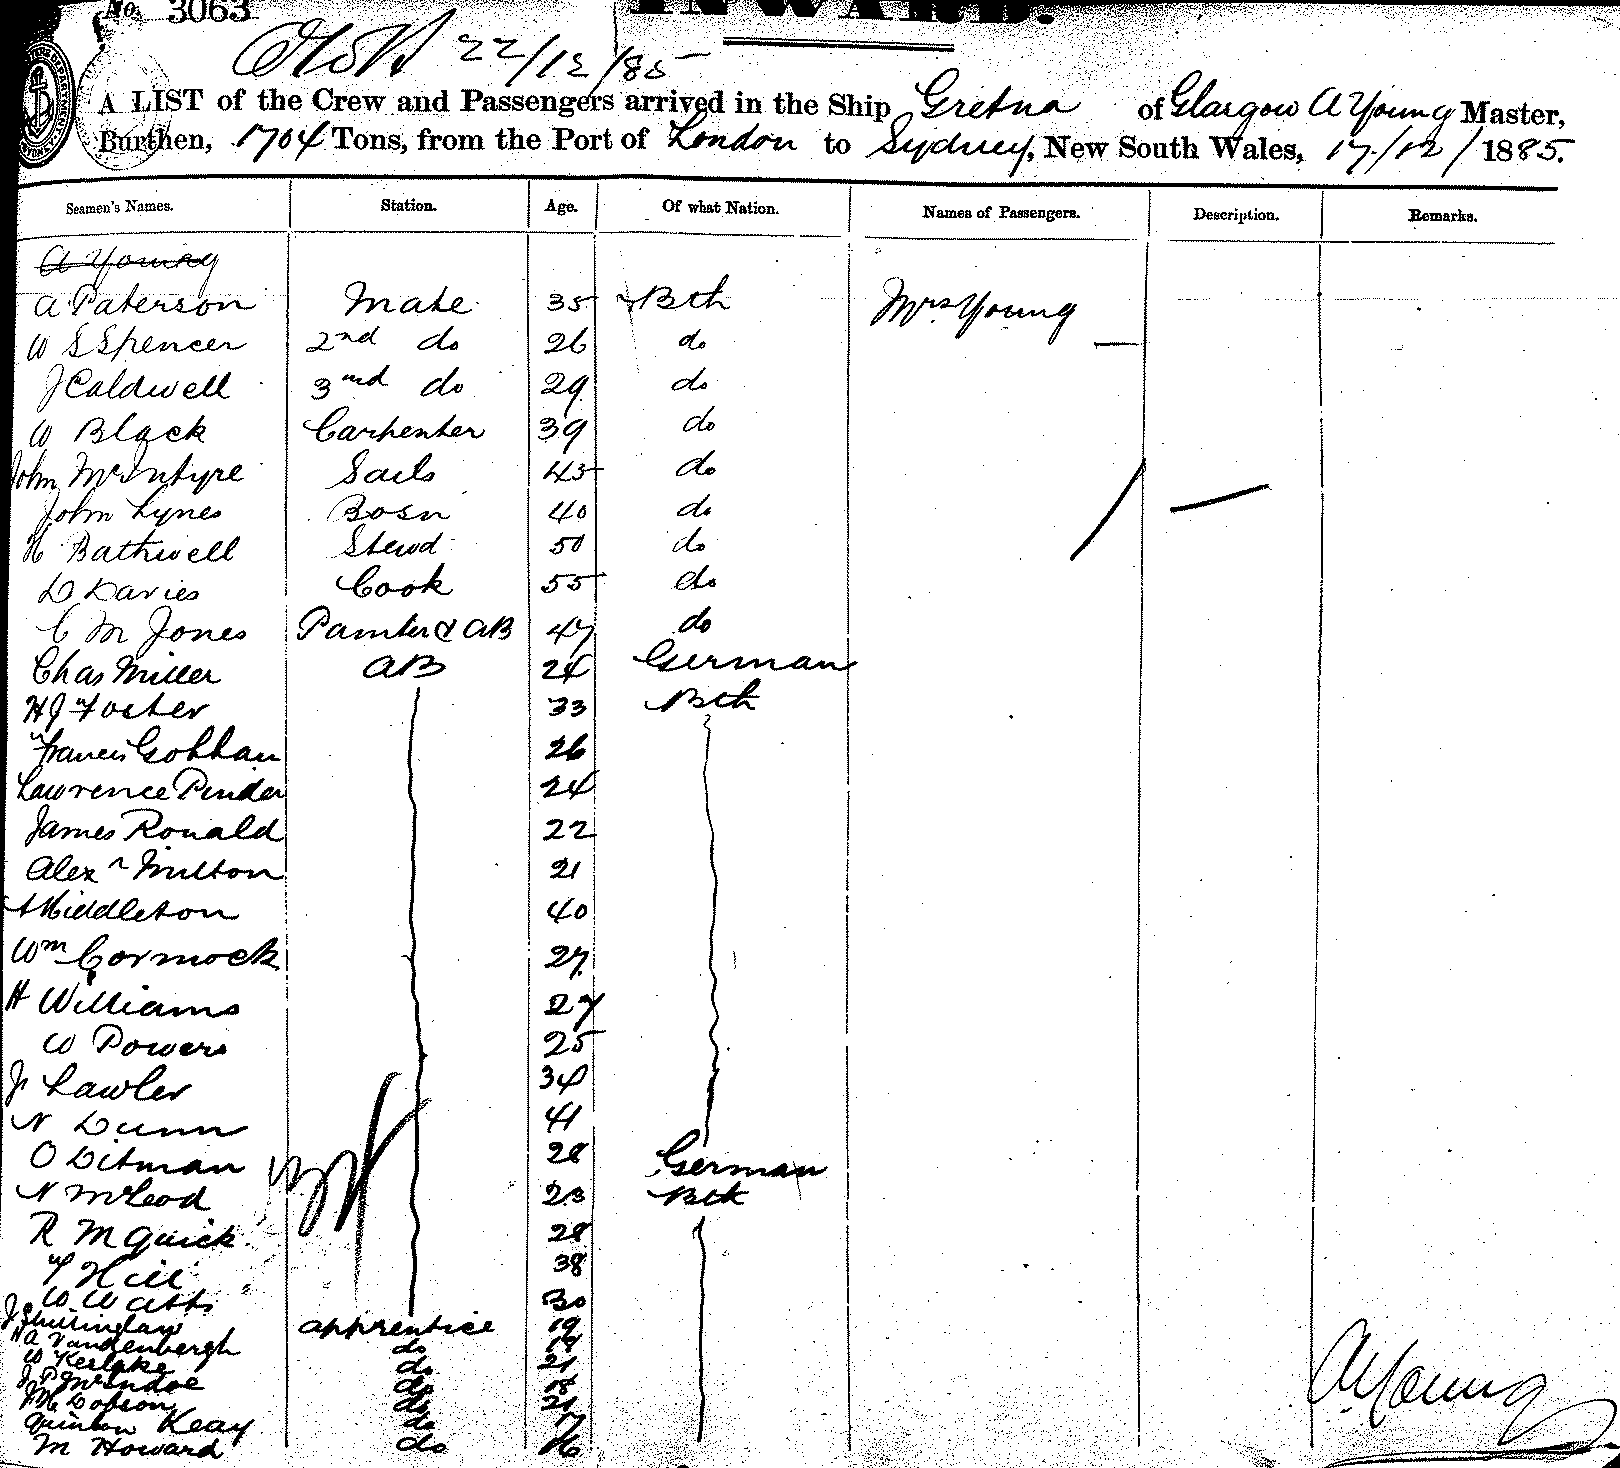 No. 3063
INWARD.
22/12/85
A LIST of the Crew and Passengers arrived in the Ship Gretna of Glasgow A Young Master,
Burthen, 1704 Tons, from the Port of London to Sydney, New South Wales, 17/12/1885.
Seamen's Names. Station. Age. Of what Nation. Names of Passengers. Description. Remarks.
A Young
A Paterson Mate 35 Bth Mrs Young
W S Spencer 2nd do 26 do
J Caldwell 3rd do 29 do
W Black Carpenter 39 do
John McIntyre Sails 45 do
John Lynes Bosn 40 do
H Bathwell Stewd 50 do
D Davies Cook 55 do
C M Jones Painter & AB 47 do
Chas Miller AB 24 German
H J Foster 33 Bth
Francis 26
Lawrence Pinder 24
James Ronald 22
Alexr Milton 21
Middleton 40
Wm Cormock 27
H Williams 27
W Powers 25
J Lawler 34
N Dunn 41
O Ditman 28 German
N McLeod 23 Bth
R McQuick 28
T Hill 38
W Watts 30
J apprentice 19
H A Vandenbergh do 19
W Keslake do 21
J P McIndoe do 18
J M Dobson do 21
Quinton Keay do 17
M Howard do 16
A Young